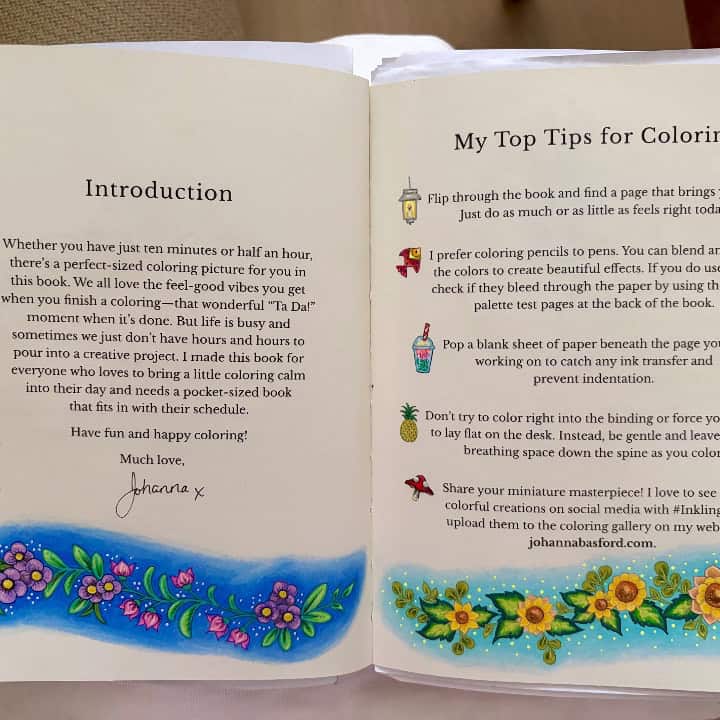 Introduction
Whether you have just ten minutes or half an hour,
there's a perfect-sized coloring picture for you in
this book. We all love the feel-good vibes you get
when you finish a coloring—that wonderful “Ta Da!”
moment when it's done. But life is busy and
sometimes we just don't have hours and hours to
pour into a creative project. I made this book for
everyone who loves to bring a little coloring calm
into their day and needs a pocket-sized book
that fits in with their schedule.
Have fun and happy coloring!
Much love,
Johanna x
My Top Tips for
Flip through the book and find a page that brings
Just do as much or as little as feels right
I prefer coloring pencils to pens. You can blend
the colors to create beautiful effects. If you do
check if they bleed through the paper by using
palette test pages at the back of the book.
Pop a blank sheet of paper beneath the page
working on to catch any ink transfer and
prevent indentation.
Don't try to color right into the binding or force
to lay flat on the desk. Instead, be gentle and
breathing space down the spine as you
Share your miniature masterpiece! I love to see
colorful creations on social media with
upload them to the coloring gallery on my
johannabasford.com.